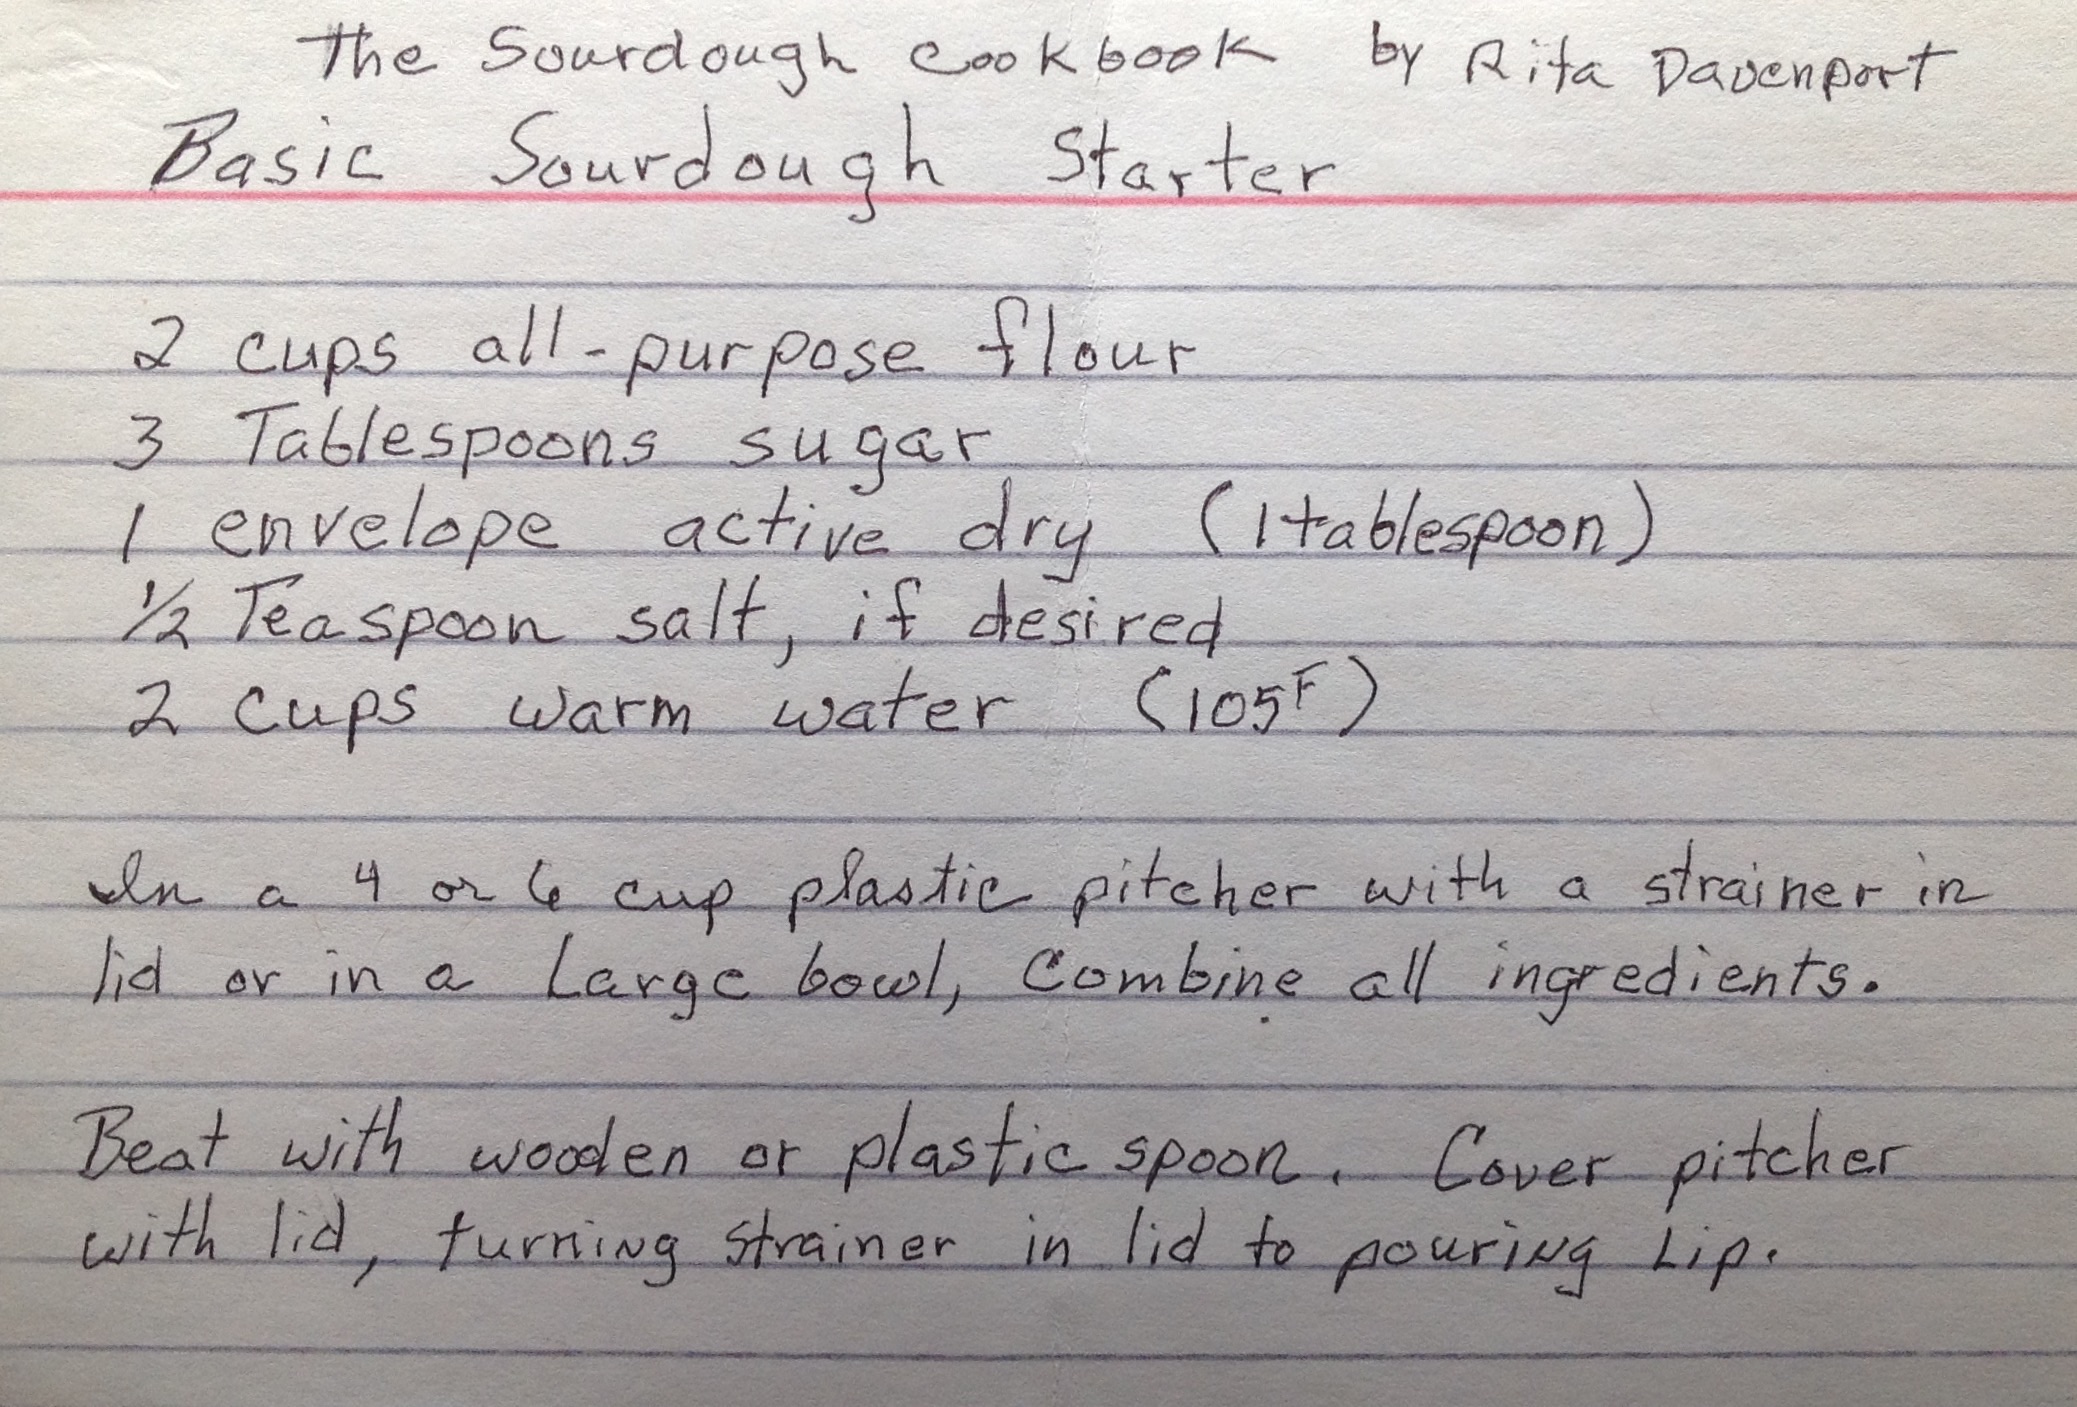 The Sourdough Cookbook by Rita Davenport
Basic Sourdough Starter
2 cups all-purpose flour
3 Tablespoons sugar
1 envelope active dry (1 tablespoon)
1/2 Teaspoon salt, if desired
2 cups warm water (105F)
In a 4 or 6 cup plastic pitcher with a strainer in
lid or in a Large bowl, Combine all ingredients.
Beat with wooden or plastic spoon. Cover pitcher
with lid, turning strainer in lid to pouring Lip.